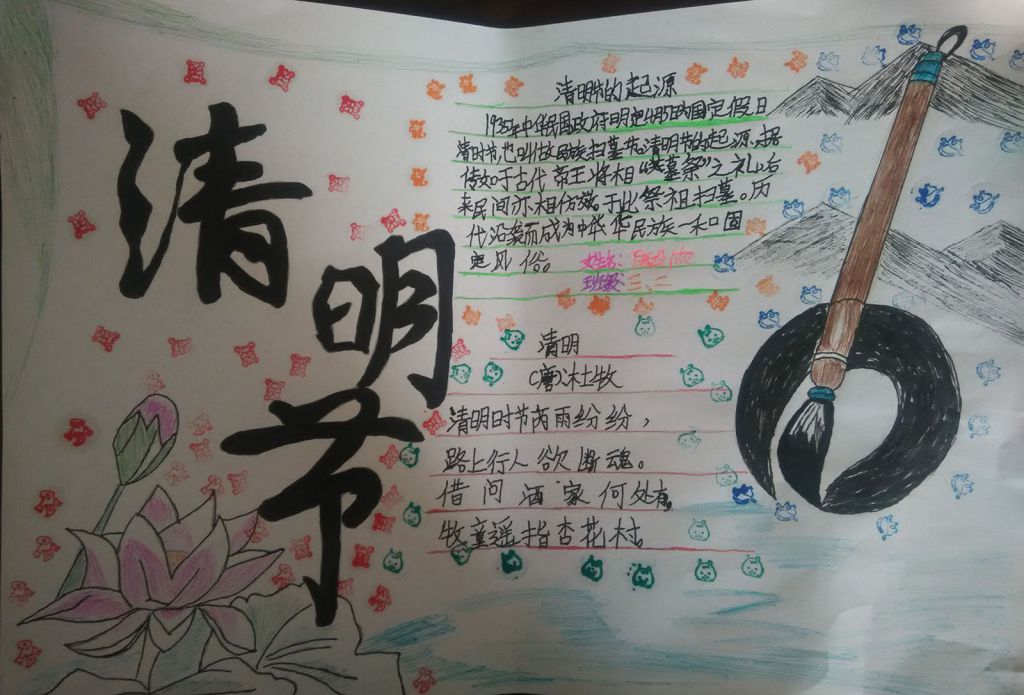 清明节
清明节的起源
1935年中华民国政府明定4月5日为国定假日
清明节,也叫做民族扫墓节。清明节的起源,据
传始于古代帝王将相“墓祭”之礼,后
来民间亦相仿效,于此祭祖扫墓。历
代沿袭而成为中华民族一种固
定风俗。
姓名:
班级:三、二
清明
(唐)杜牧
清明时节芮雨纷纷,
路上行人欲断魂。
借问酒家何处有。
牧童遥指杏花村。